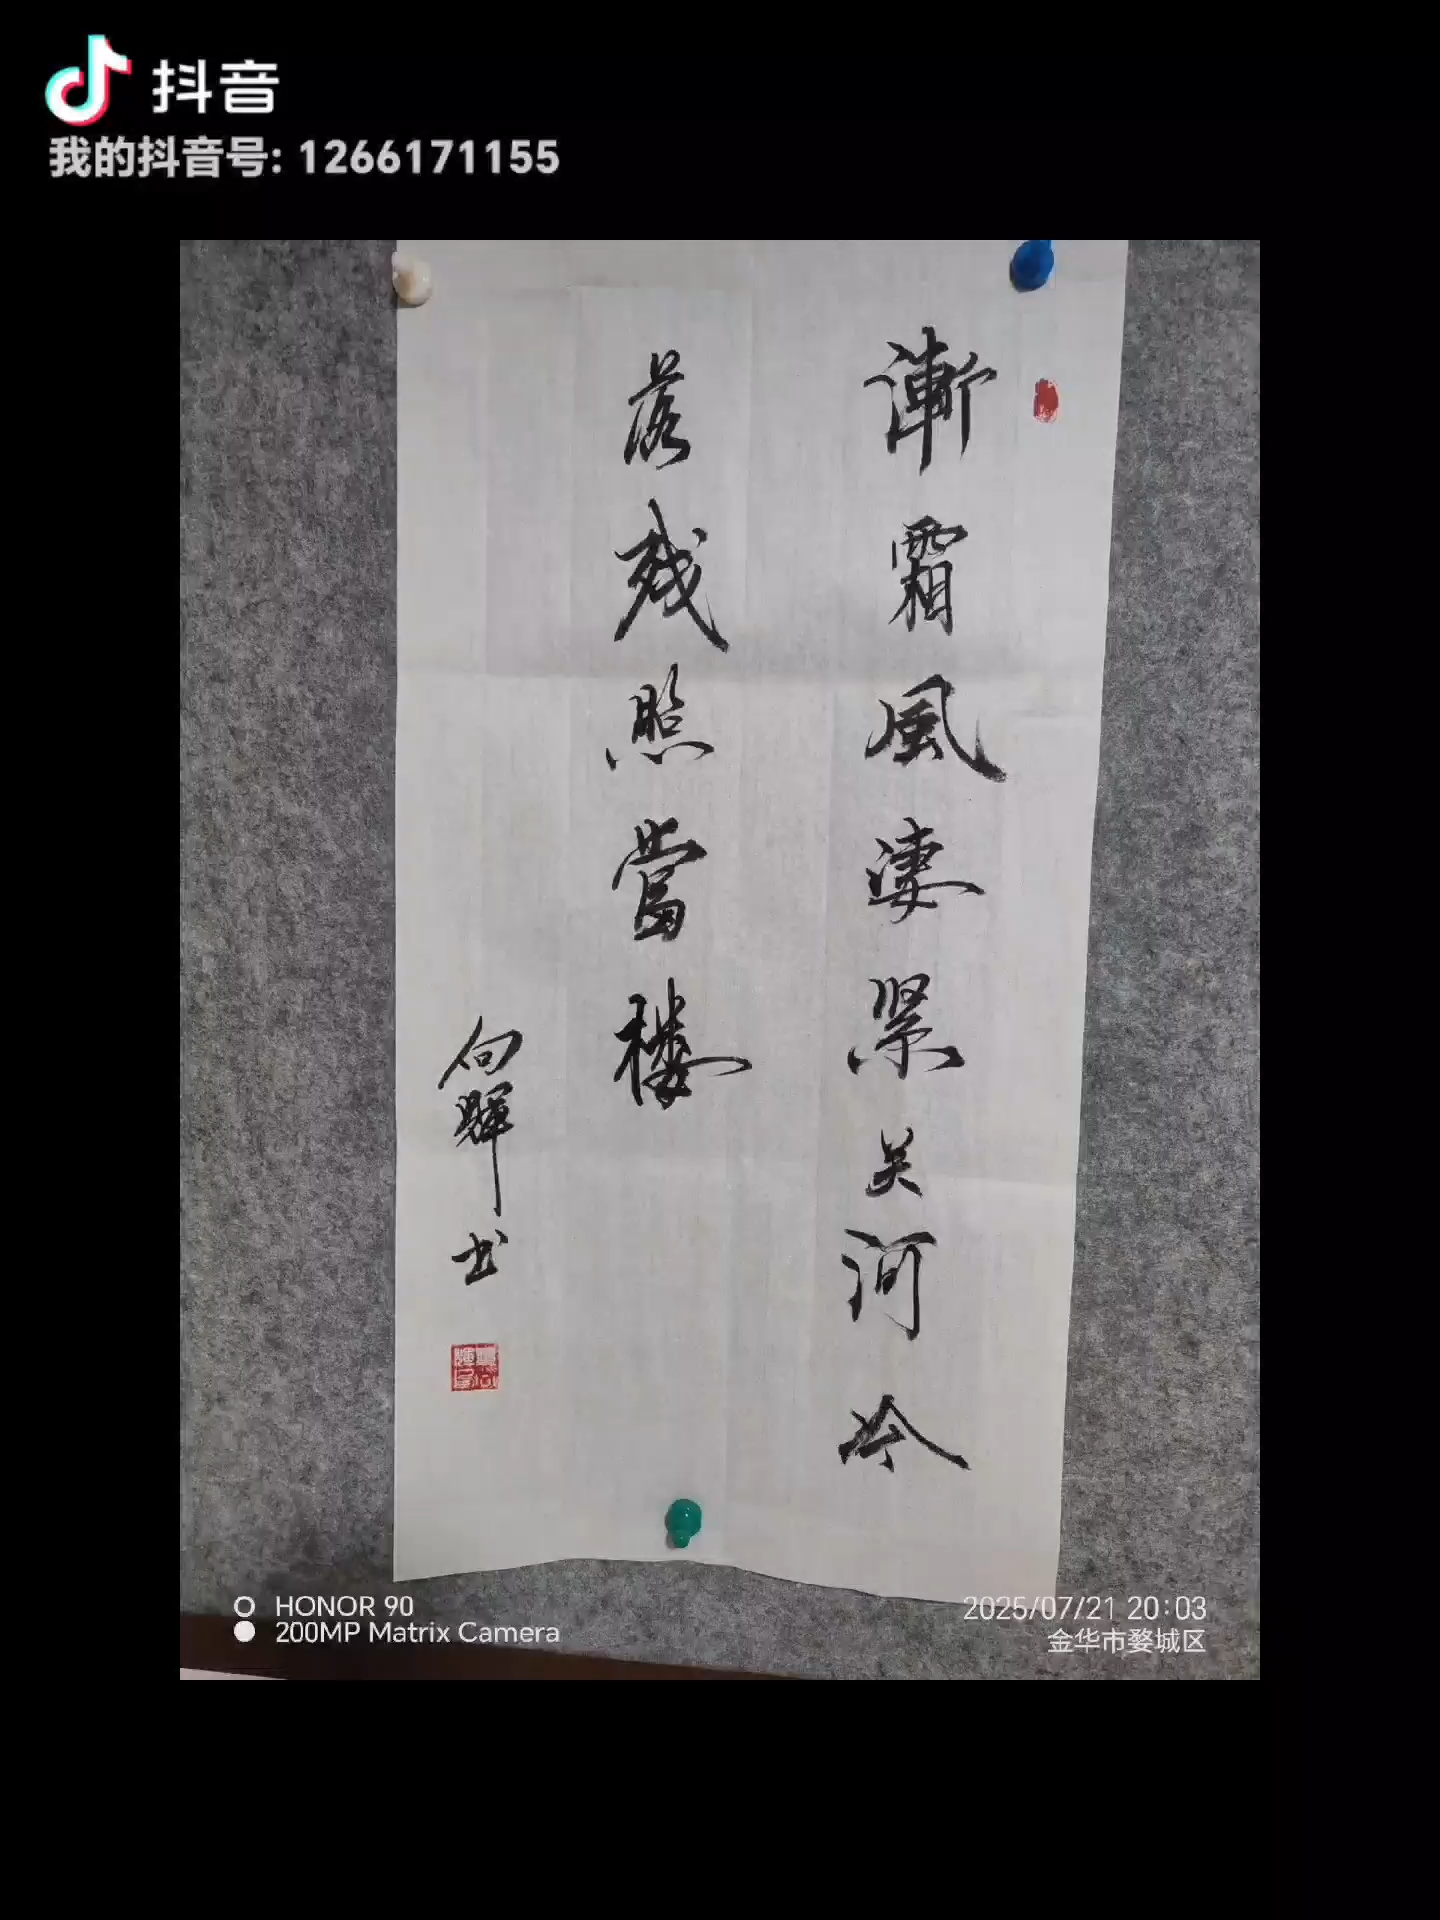 抖音
我的抖音号: 1266171155
漸霜風凄緊关河冷
落残照當楼
向暉书
HONOR 90
200MP Matrix Camera
2025/07/21 20:03
金华市婺城区